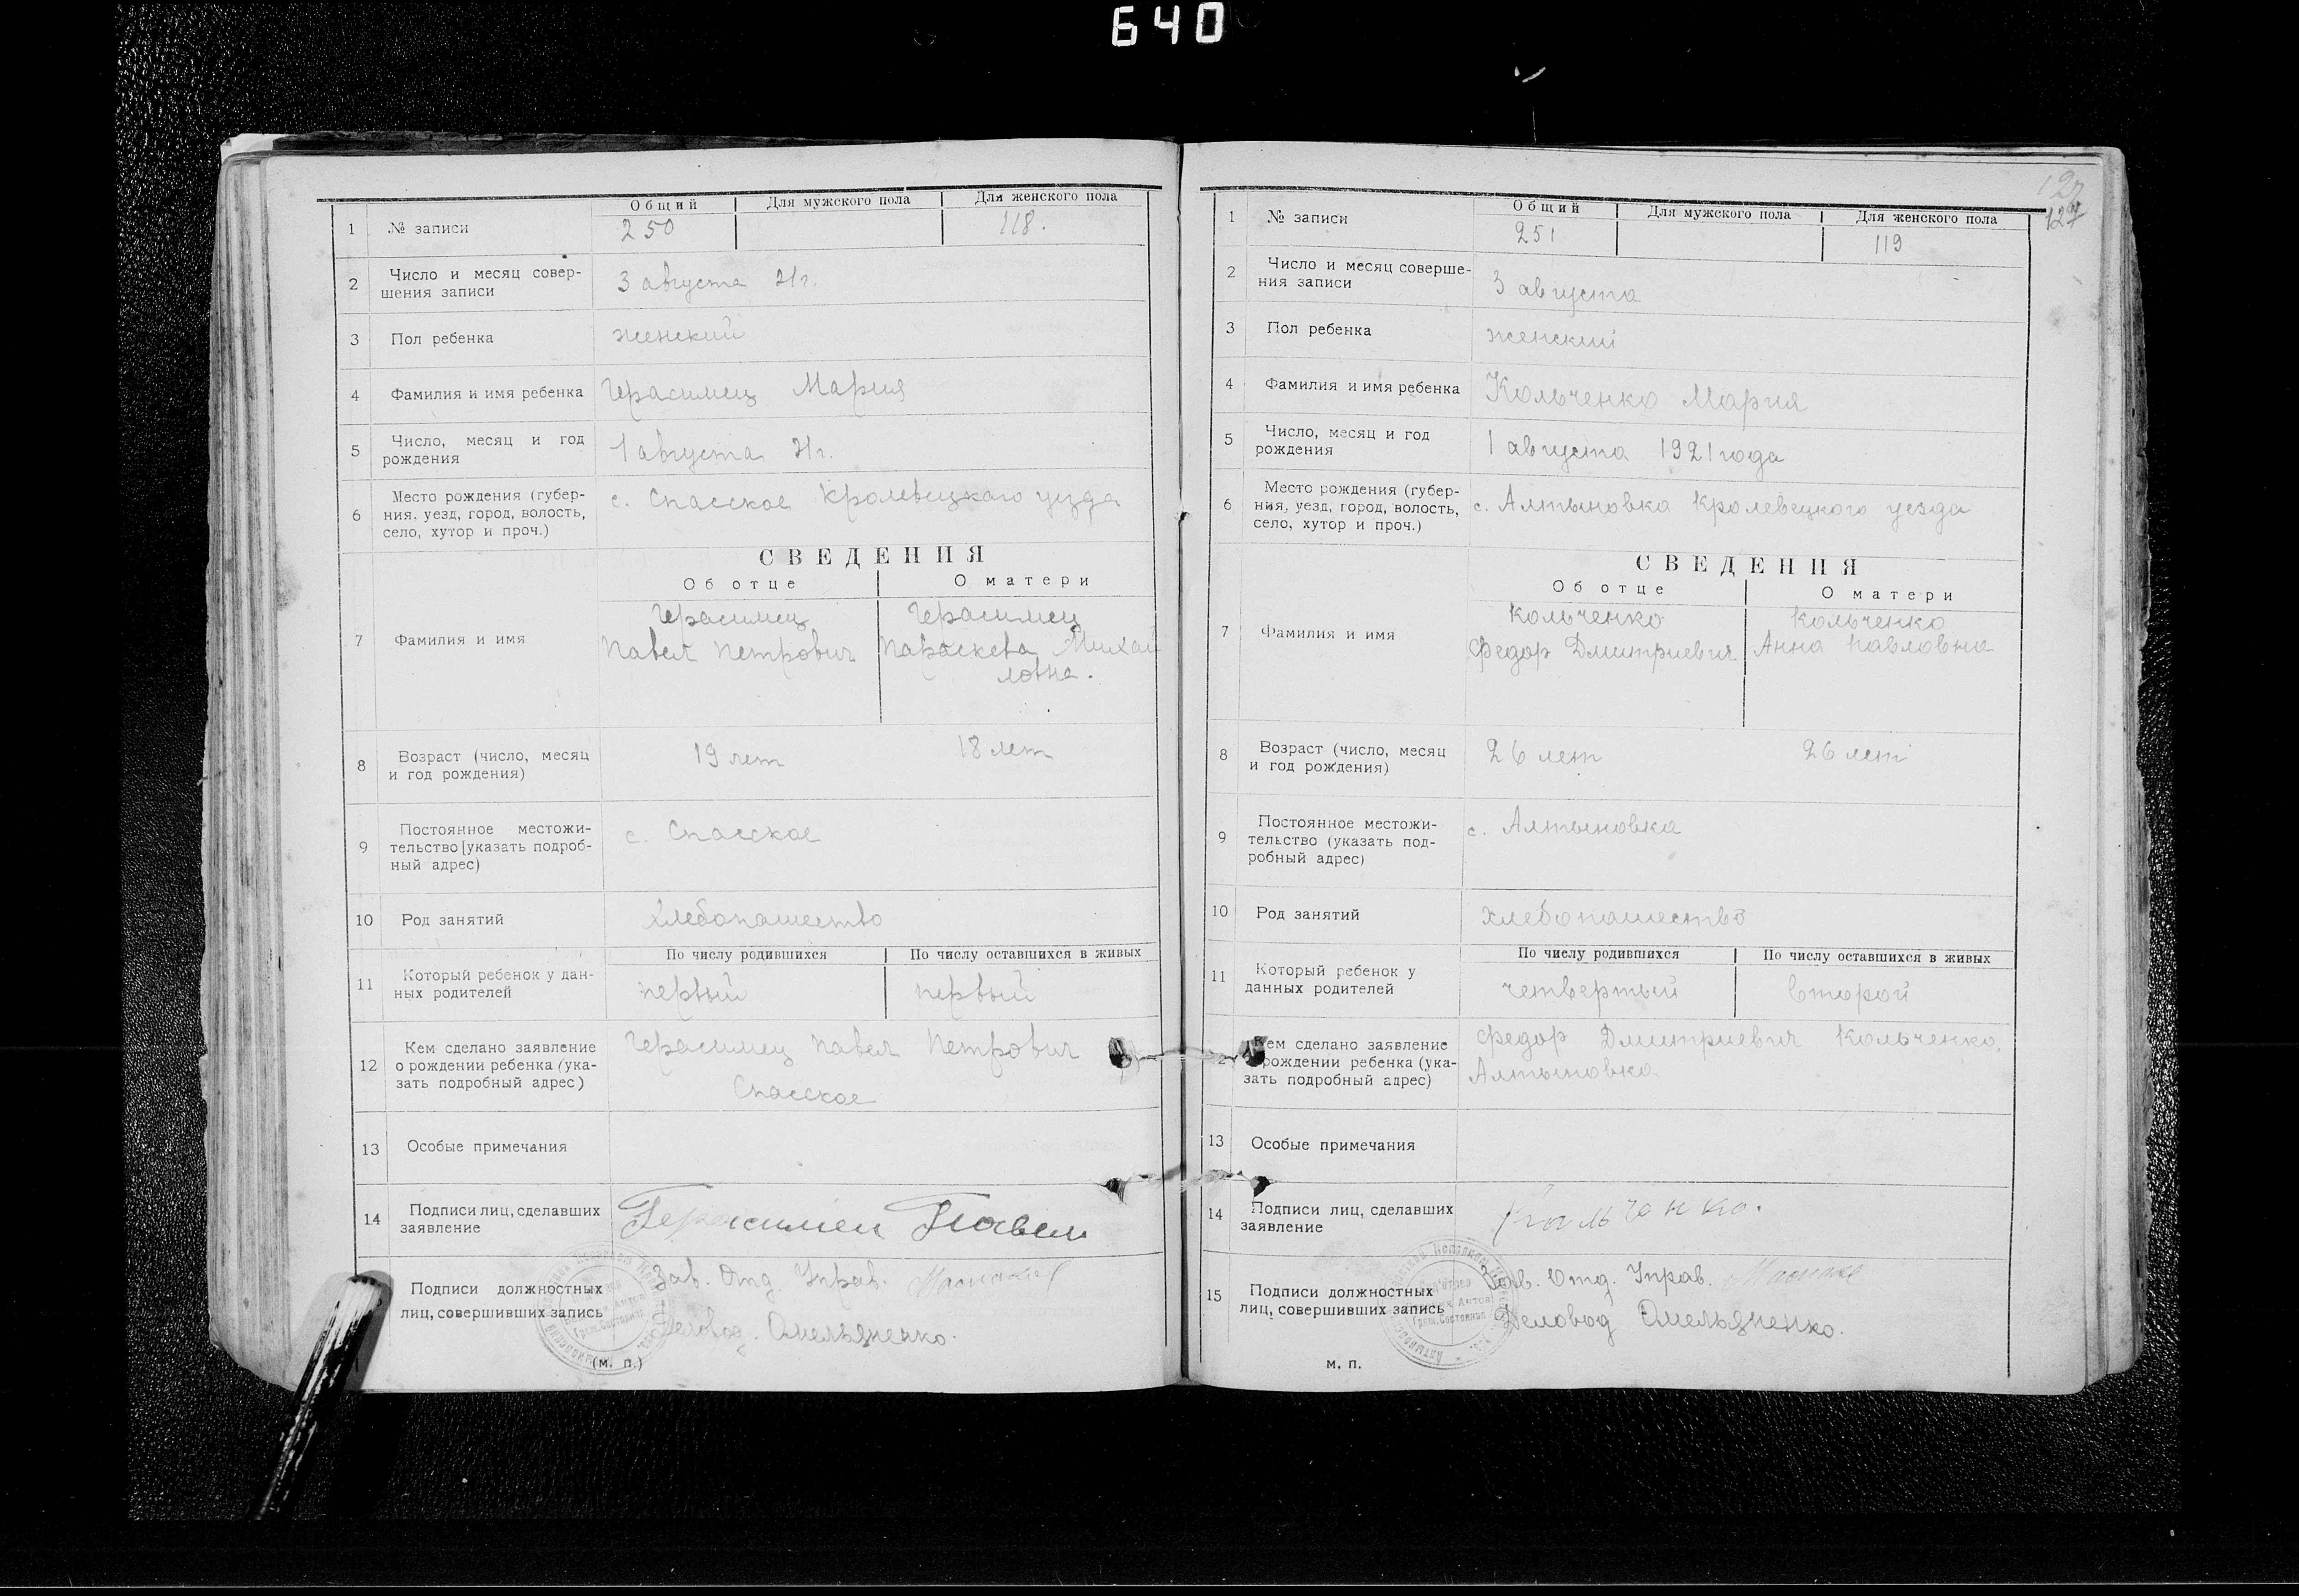 640
Общий Для мужского пола Для женского пола
1 № записи 250 118.
2 Число и месяц совер-
шения записи 3 августа 21г.
3 Пол ребенка женский
4 Фамилия и имя ребенка Герасимец Мария
5 Число, месяц и год
рождения 1 августа 21г.
6 Место рождения (губер-
ния, уезд, город, волость,
село, хутор и проч.) с. Спасское Кролевецкаго уезда
СВЕДЕНИЯ
Об отце О матери
7 Фамилия и имя
Герасимец Герасимец
Павел Петрович Параскева Михай
ловна.
8 Возраст (число, месяц
и год рождения) 19 лет 18 лет
9 Постоянное местожи-
тельство [указать подроб-
ный адрес) с. Спасское
10 Род занятий хлебопашество
По числу родившихся По числу оставшихся в живых
11 Который ребенок у дан-
ных родителей первый первый
12 Кем сделано заявление
о рождении ребенка (ука-
зать подробный адрес) Герасимец Павел Петрович
Спасское
13 Особые примечания
14 Подписи лиц, сделавших
заявление Герасимец Павел
Подписи должностных
лиц, совершивших запись Зав. Отд. Управ.
Деловод. Омельяненко.
(м. п.)
127
Общий Для мужского пола Для женского пола
1 № записи 251 119
2 Число и месяц соверше-
ния записи 3 августа
3 Пол ребенка женский
4 Фамилия и имя ребенка Кольченко Мария
5 Число, месяц и год
рождения 1 августа 1921 года
6 Место рождения (губер-
ния, уезд, город, волость,
село, хутор и проч.) с. Алтыновка Кролевецкого уезда
СВЕДЕНИЯ
Об отце О матери
7 Фамилия и имя
Кольченко Кольченко
Федор Дмитриевич Анна Павловна
8 Возраст (число, месяц
и год рождения) 26 лет 26 лет
9 Постоянное местожи-
тельство (указать под-
робный адрес) с. Алтыновка
10 Род занятий хлебопашество
По числу родившихся По числу оставшихся в живых
11 Который ребенок у
данных родителей четвертый второй
Кем сделано заявление
рождении ребенка (ука-
зать подробный адрес) Федор Дмитриевич Кольченко,
Алтыновка
13 Особые примечания
14 Подписи лиц, сделавших
заявление Кальченко.
15 Подписи должностных
лиц, совершивших запись Зав. Отд. Управ.
Деловод Омельяненко.
м. п.